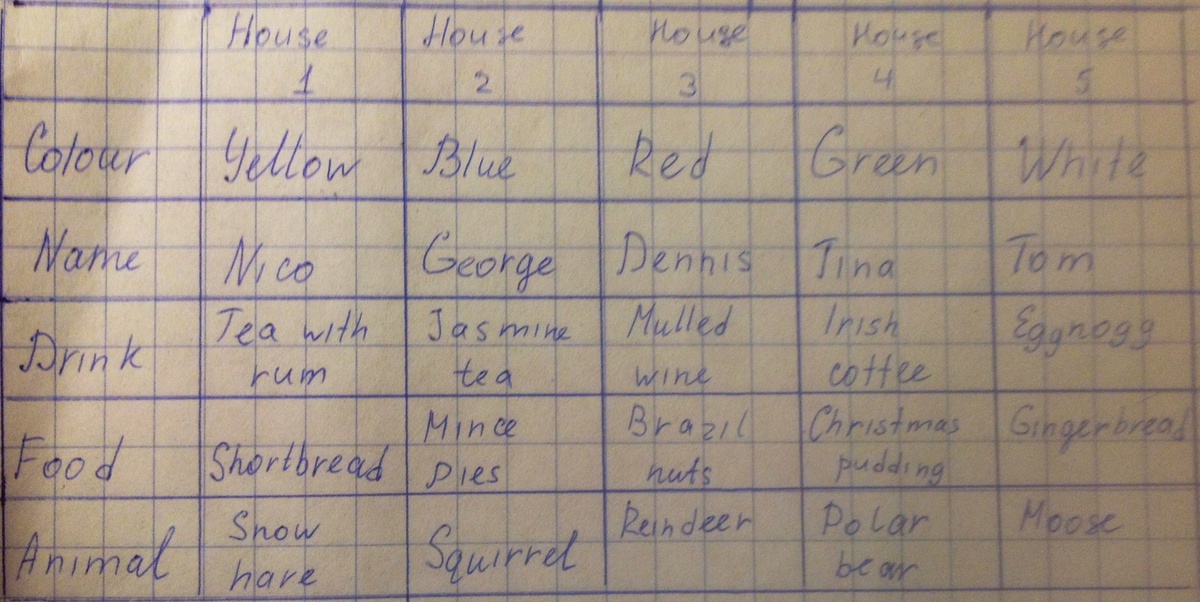 House 1 House 2 House 3 House 4 House 5
Colour Yellow Blue Red Green White
Name Nico George Dennis Tina Tom
Drink Tea with rum Jasmine tea Mulled wine Irish coffee Eggnogg
Food Shortbread Mince pies Brazil nuts Christmas pudding Gingerbread
Animal Snow hare Squirrel Reindeer Polar bear Moose